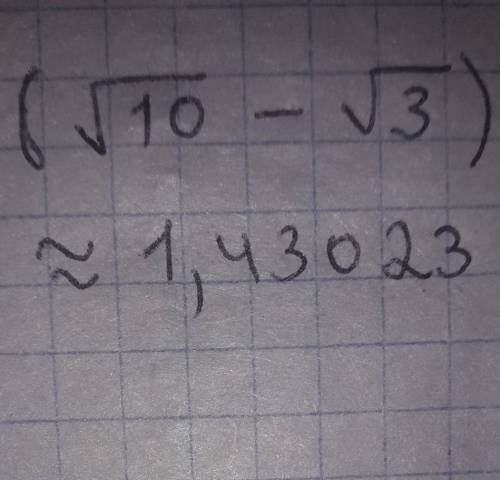 (√10 - √3)
≈ 1,43023